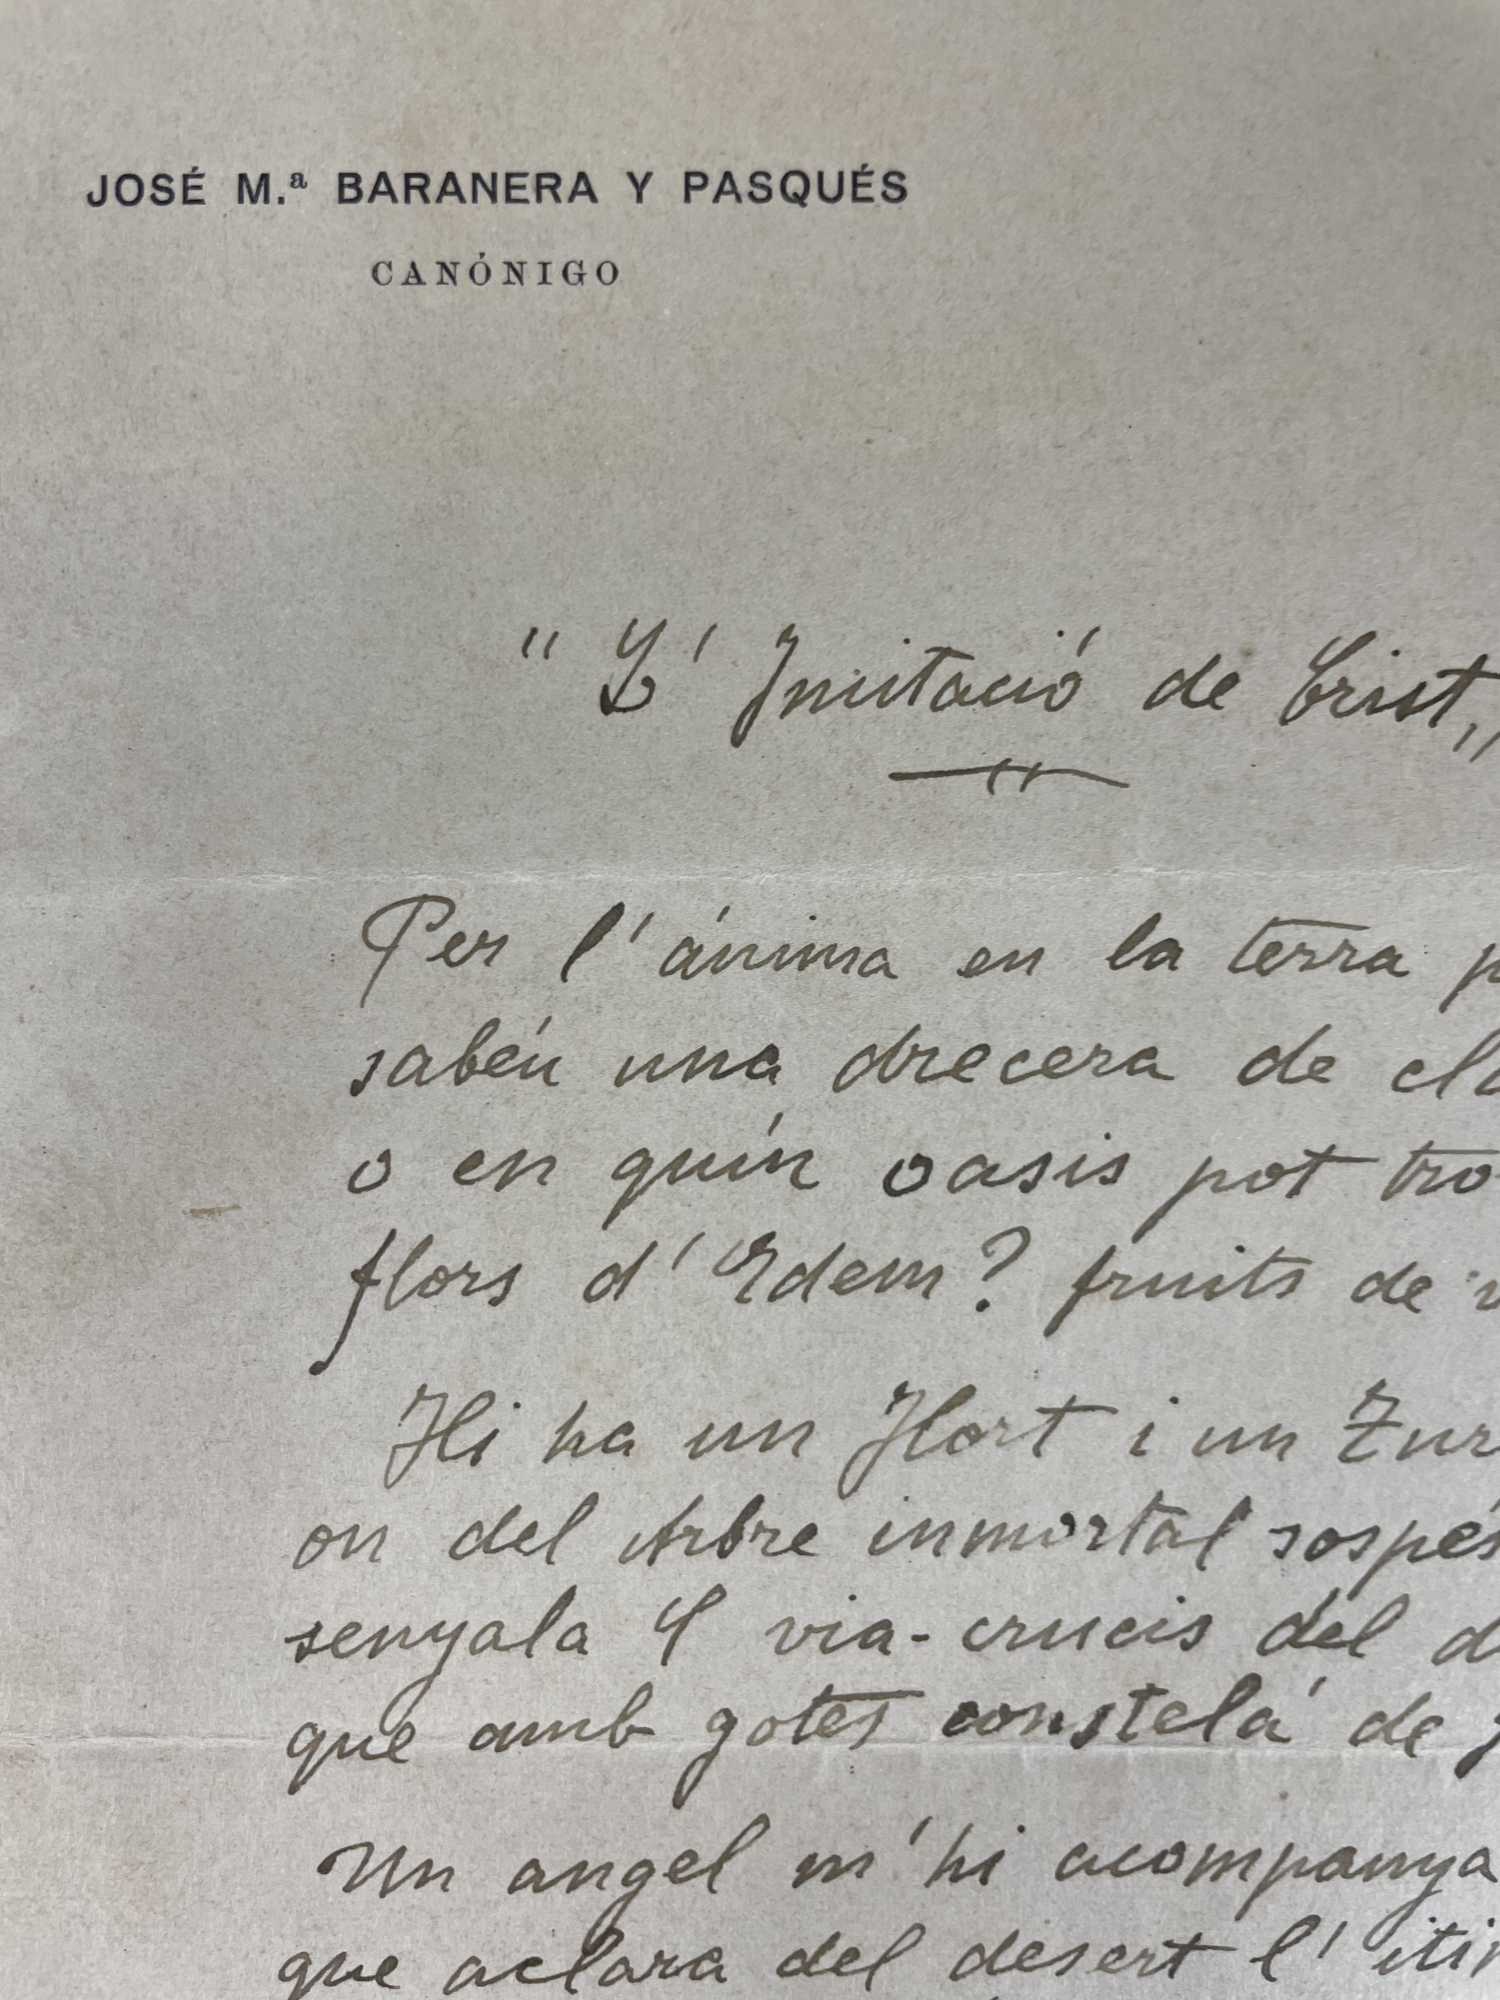 JOSÉ M.ª BARANERA Y PASQUÉS
CANÓNIGO
"L' Imitació de Crist"
Per l'ánima en la terra p
sabéu una drecera de cl
o en quín oasis pot tro
flors d'Edem? fruits de v
Hi ha un Hort i un Zur
on del Arbre inmortal sospés
senyala 'l via-crucis del d
que amb gotes constelá de
Un angel m'hi acompanya
que aclara del desert l'itin